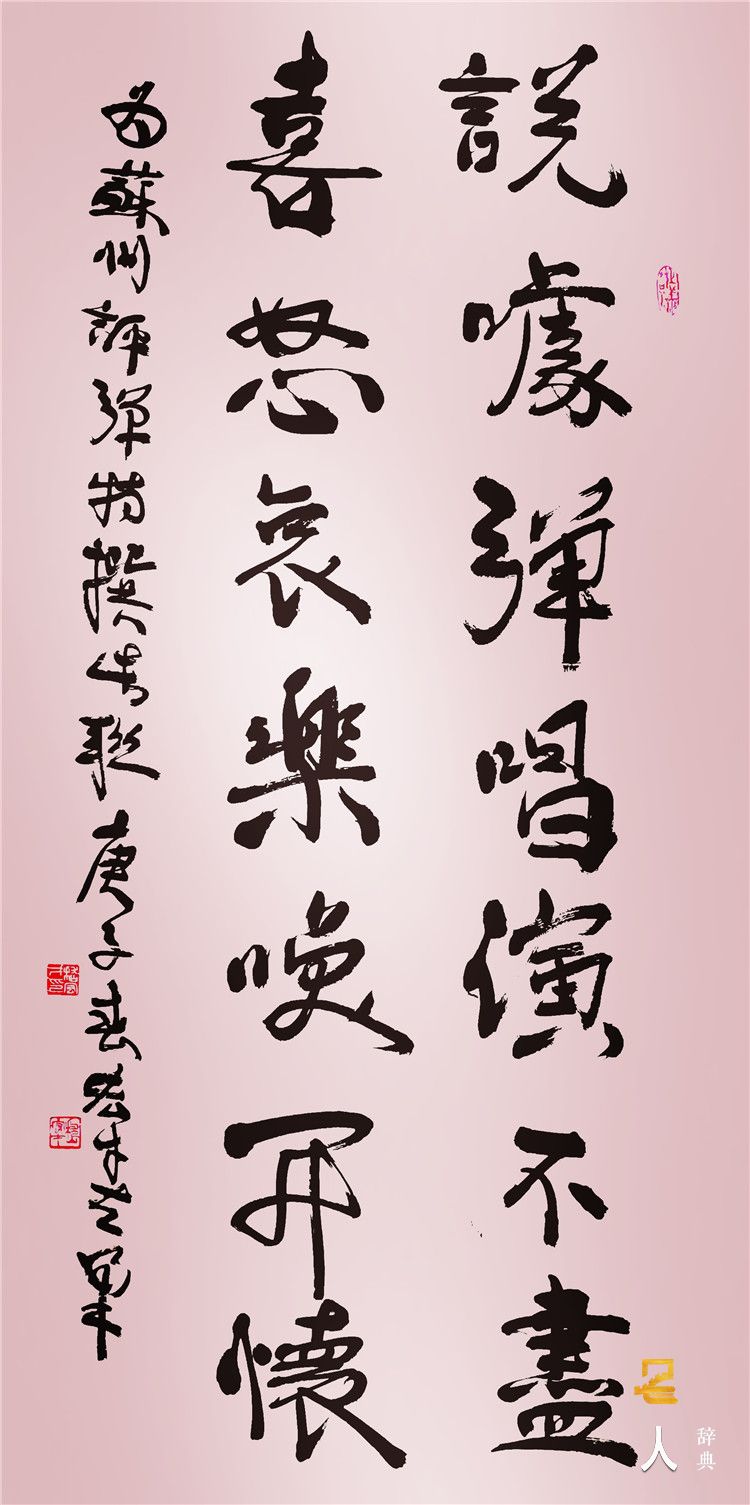 説噱彈唱演不盡
喜怒哀樂喚開懷
為蘇州評彈特撰書聯庚子春
名人
辞典